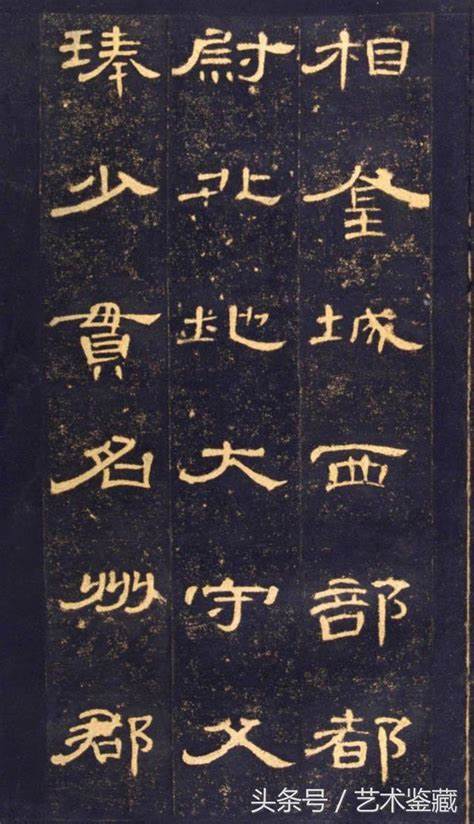 相金城西部都
尉北地大守父
琫少貫名州郡
头条号/艺术鉴藏